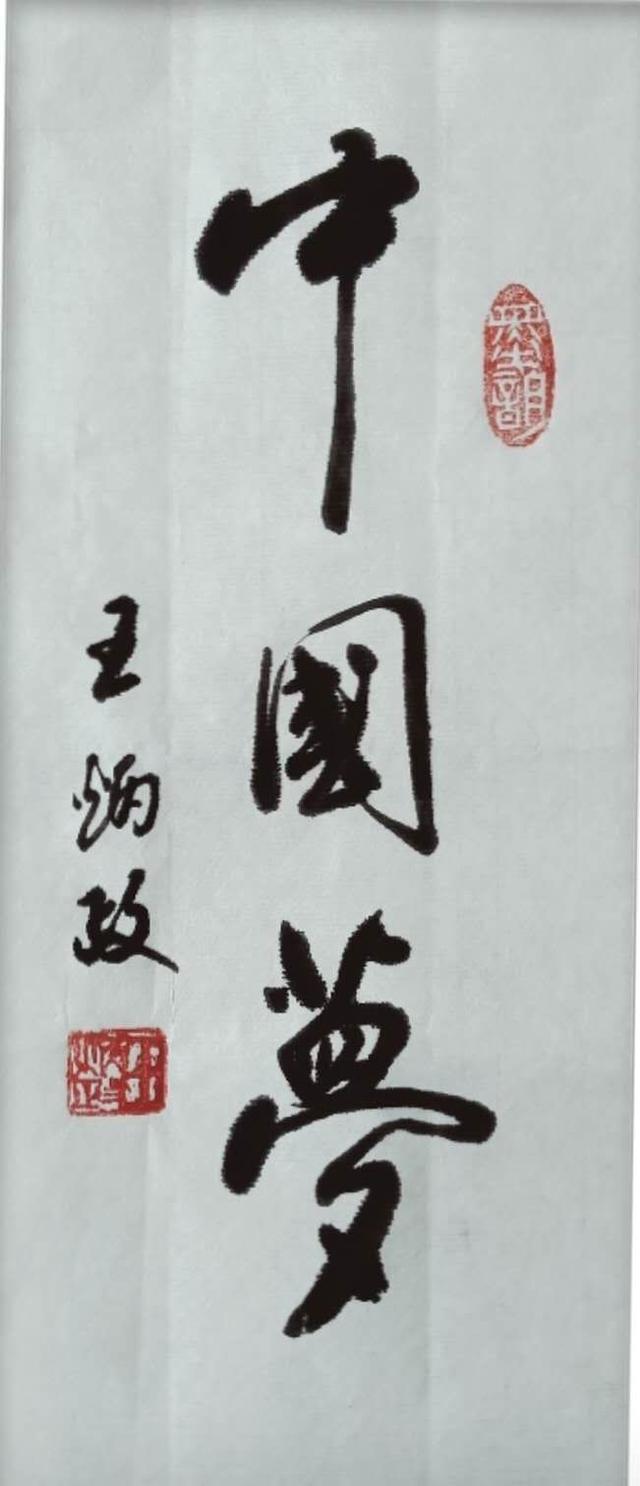 中國夢
王炳政